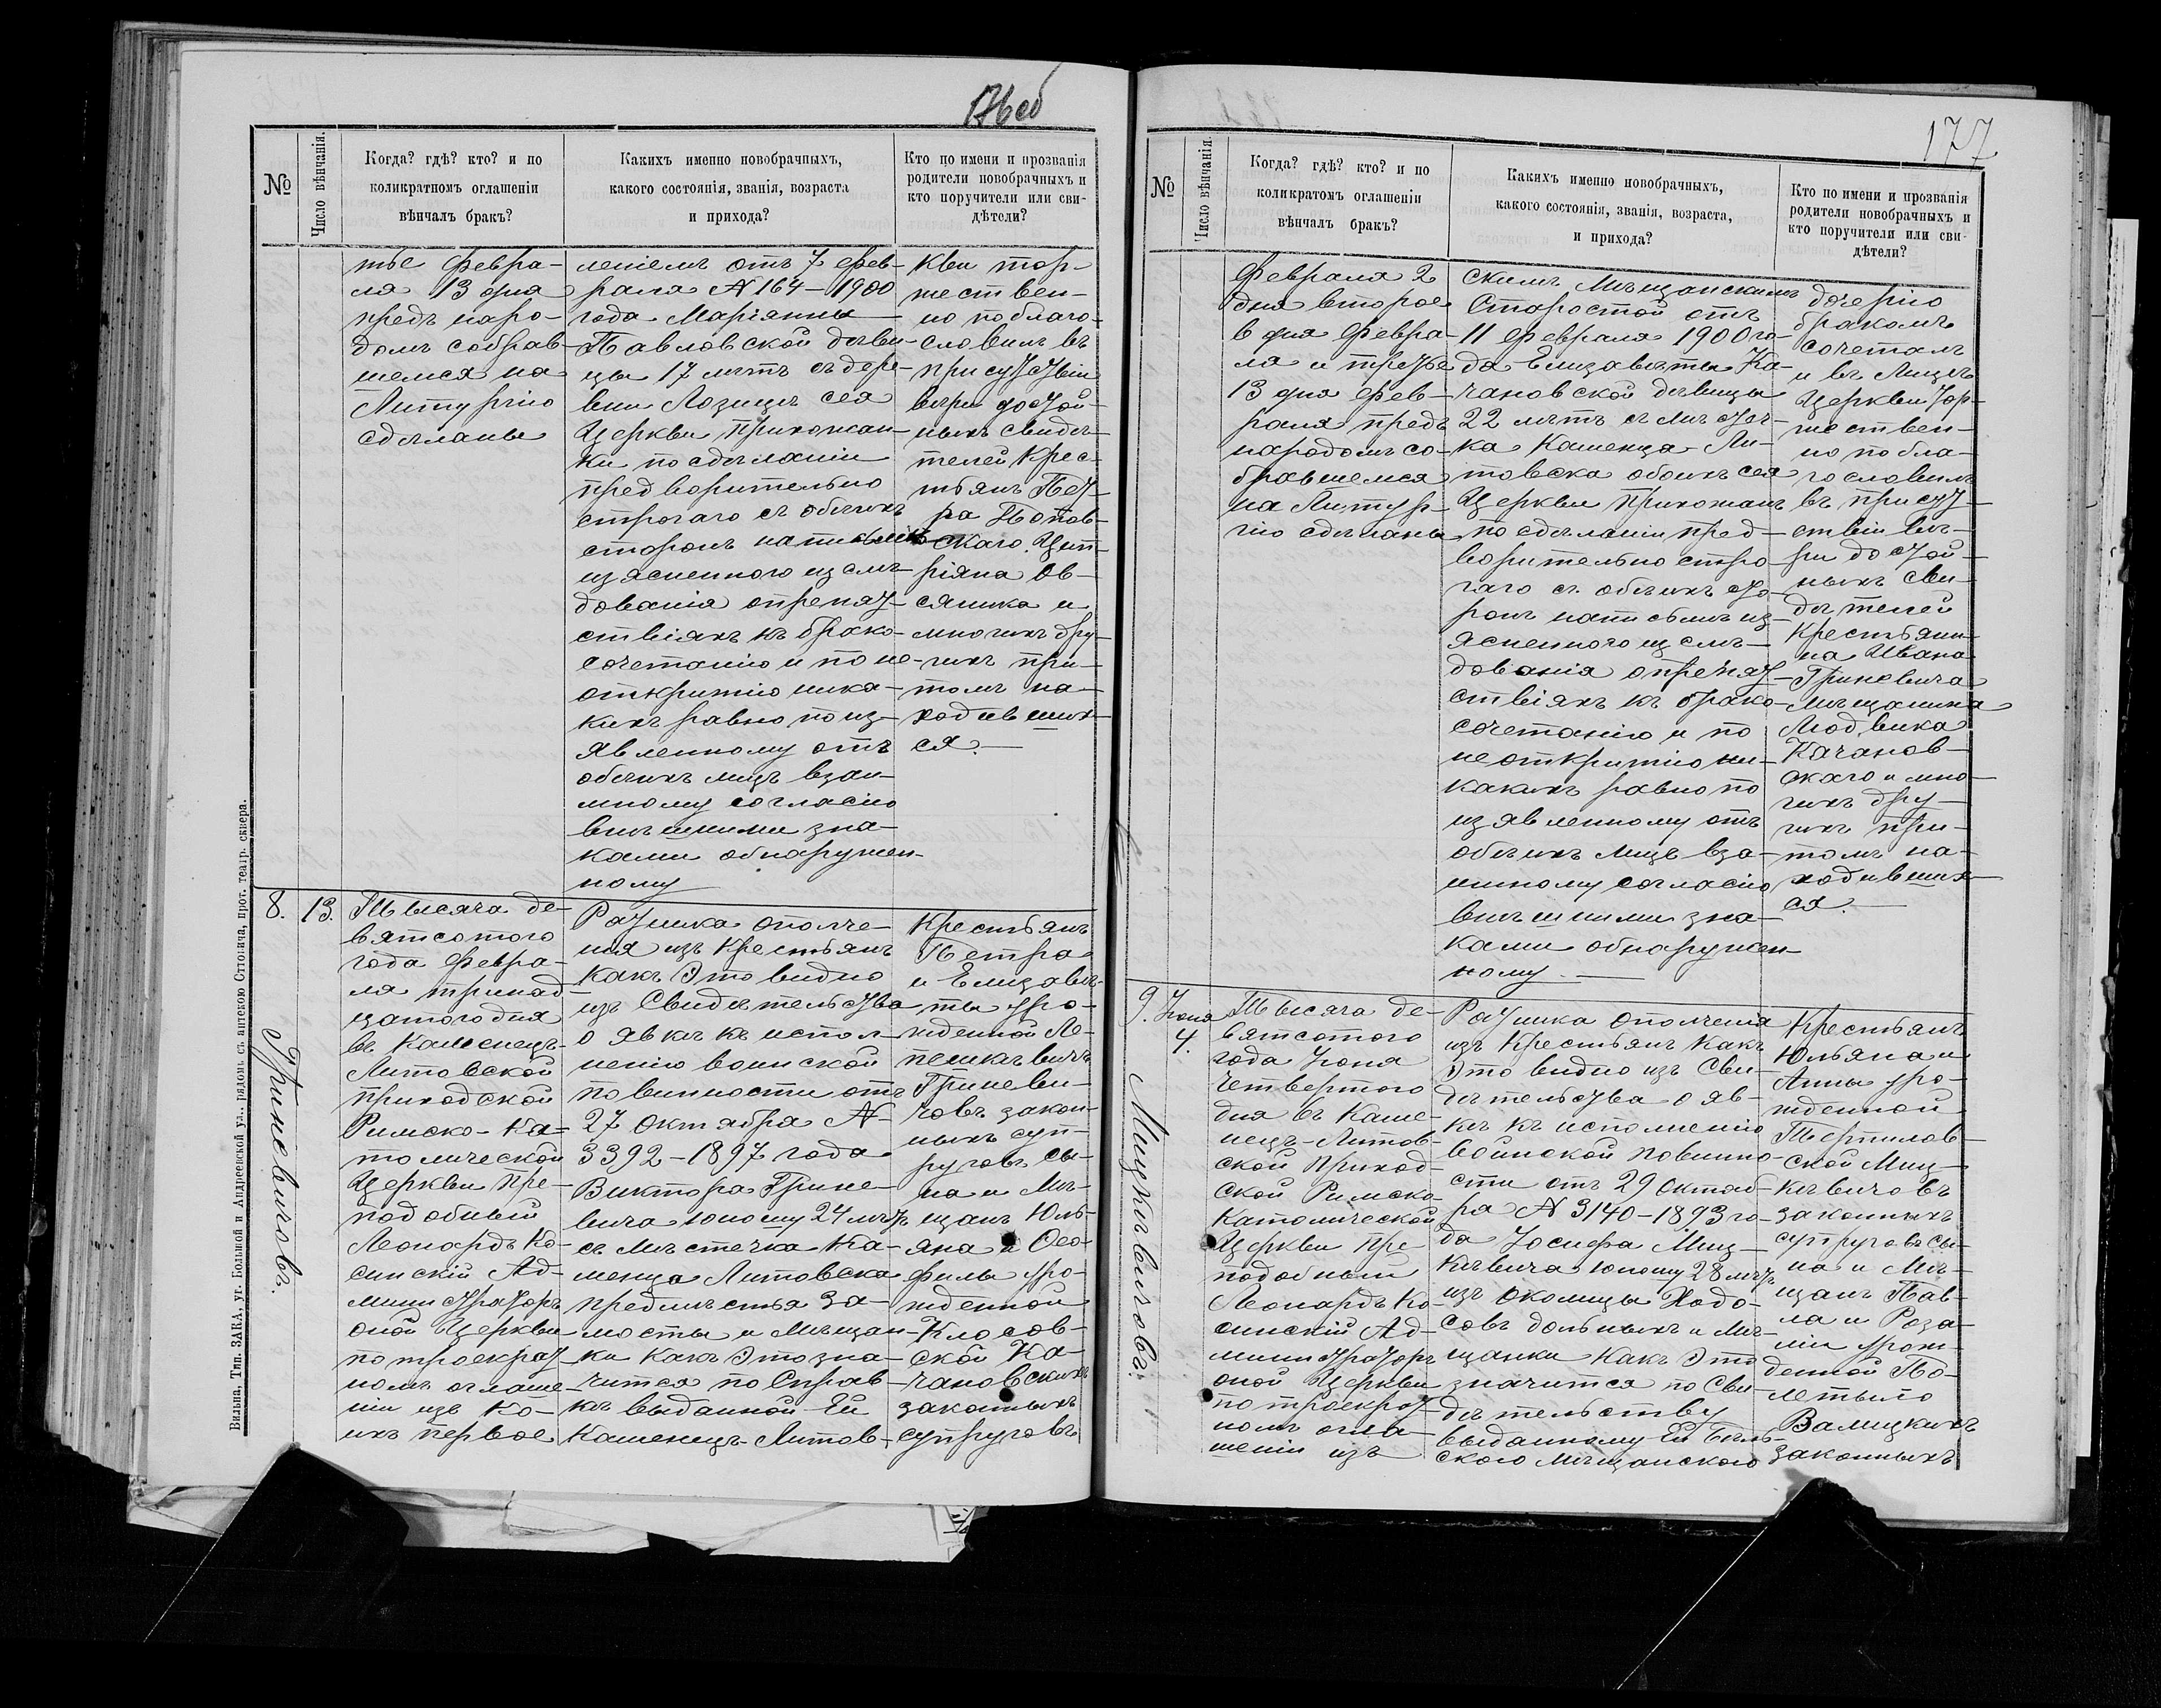 176об
№
Число вѣнчанія.
Когда? гдѣ? кто? и по
коликратномъ оглашеніи
вѣнчалъ бракъ?
Какихъ именно новобрачныхъ,
какого состоянія, званія, возраста
и прихода?
Кто по имени и прозванія
родители новобрачныхъ и
кто поручители или сви-
дѣтели?
тье Февра-
ля 13 дня
предъ наро-
домъ собрав-
шемся на
Литургію
сдѣланы
леніемъ отъ 7 фев-
раля № 164-1900
года Маріянны
Павловской дѣви-
цы 17 лѣтъ съ дере-
вни Лозицъ сея
Церкви Прихожан-
ки по сдѣланіи
предворительно
строгаго съ обѣихъ
сторонъ
изясненного изслѣ-
дованія опрепят-
ствіяхъ къ брако-
сочетанію и по не-
открытію ника-
кихъ равно по из-
явленному отъ
обѣихъ лицъ взаи-
мному согласію
внѣшними зна-
ками обнаружен-
ному
кви тор-
жествен-
но поблаго-
словилъ въ
присутствіи
вѣри достой-
ныхъ свидѣ-
телей Крес-
тьянъ Пет-
ра Попов-
скаго, Цип-
ріяна Ов-
сяника и
многихъ дру-
гихъ при-
томъ на-
ходивших-
ся.
8.
13.
Гриневичовъ.
Тысяча де-
вятсотого
года Февра-
ля тринад-
цатого дня
въ Каменецъ-
Литовской
приходской
Римско-Ка-
толической
Церкви Пре-
подобный
Леонардъ Ко-
синскій Ад-
министраторъ
оной Церкви
по троекрат-
номъ оглаше-
ніи изъ ко-
ихъ первое
Ратника ополче-
нія изъ Крестьянъ
какъ Это видно
изъ Свидѣтельства
о явкѣ къ испол-
ненію воинской
повинности отъ
27 Октября №-
3392-1897 года
Виктора Грине-
вича юношу 24 лѣтъ
съ Мѣстечка Ка-
менца Литовска
предмѣстья За-
мосты и Мѣщан-
ки какъ Это зна-
чится по Справ-
кѣ выданной Ей
Каменецъ-Литов-
Крестьянъ
Петра
и Елизавѣ-
ты уро-
жденной Ле-
пешкѣвичъ
Гриневи-
човъ закон-
ныхъ суп-
руговъ сы-
на и Мѣ-
щанъ Юль-
яна и Ѳео-
филы уро-
жденной
Клосов-
ской Ка-
чановскихъ
законныхъ
супруговъ
Вильна, Тип. ЗАКА, уг. Большой и Андреевской ул., рядомъ съ аптекою Стговича, прот. театр. сквера.
177
№
Число вѣнчанія.
Когда? гдѣ? кто? и по
коликратомъ оглашеніи
вѣнчалъ бракъ?
Какихъ именно новобрачныхъ,
какого состоянія, званія, возраста,
и прихода?
Кто по имени и прозванія
родители новобрачныхъ и
кто поручители или сви-
дѣтели?
Февраля 2
дня второе
6 дня Февра-
ля и третье
13 дня Фев-
раля предъ
народомъ со-
бравшемся
на Литур-
гію сдѣланы
скимъ Мѣщанскимъ
Старостой отъ
11 Февраля 1900 го-
да Елизавѣты Ка-
чановской дѣвицы
22 лѣтъ съ Мѣстеч-
ка Каменца-Ли-
товска обоихъ сея
Церкви прихожанъ
по сдѣланіи пред-
ворительно стро-
гаго съ обѣихъ сто-
ронъ из-
ясненного изслѣ-
дованія опрепят-
ствіяхъ къ брако-
сочетанію и по
не открытію ни-
какихъ равно по
изявленному отъ
обѣихъ лицъ вза-
имному согласію
внѣшними зна-
ками обнаружен-
ному.
дочерію
бракомъ
сочеталъ
и въ Лицѣ
Церкви тор-
жествен-
но побла-
гословилъ
въ присут-
ствіи вѣ-
ри достой-
ныхъ сви-
дѣтелей
Крестьяни-
на Ивана
Гриневича
Мѣщанина
Людвика
Качанов-
скаго и мно-
гихъ дру-
гихъ при-
томъ на-
ходивших-
ся.
9.
Іюня
4.
Мицкѣвичовъ.
Тысяча де-
вятсотого
года Іюня
четвертого
дня въ Каме-
нецъ-Литов-
ской Приход-
ской Римско
Католической
Церкви Пре-
подобный
Леонардъ Ко-
синскій Ад-
министраторъ
оной Церкви
по троекрат-
номъ огла-
шеніи изъ
Ратника Ополченія
изъ Крестьянъ какъ
Это видно изъ Сви-
дѣтельства о яв-
кѣ къ исполненію
воинской повинно-
сти отъ 29 Октяб-
ря № 3140-1893 го-
да Іосифа Миц-
кѣвича юношу 28 лѣтъ
изъ околицы Ходо-
совъ дольныхъ и Мѣ-
щанки какъ Это
значится по Сви-
дѣтельству
выданному Ей Бѣль-
ского Мѣщанского
Крестьянъ
Юльяна и
Анны уро-
жденной
Тертилов-
ской Миц-
кѣвичовъ
законныхъ
супруговъ сы-
на и Мѣ-
щанъ Пав-
ла и Роза-
ліи урож-
денной По-
летыло
Валицкихъ
законныхъ